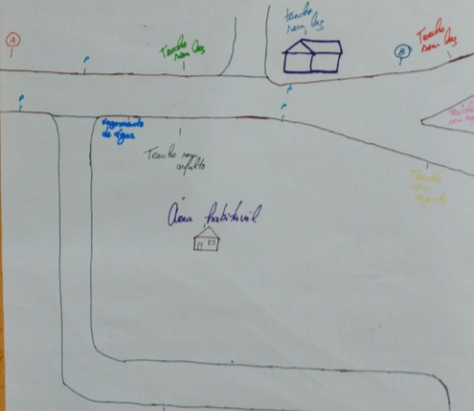 A
Trecho
sem luz
trecho
sem luz
B
Trecho
sem luz
vazamento
de água
Trecho sem
asfalto
Trecho
Trecho
sem
Área habitavil